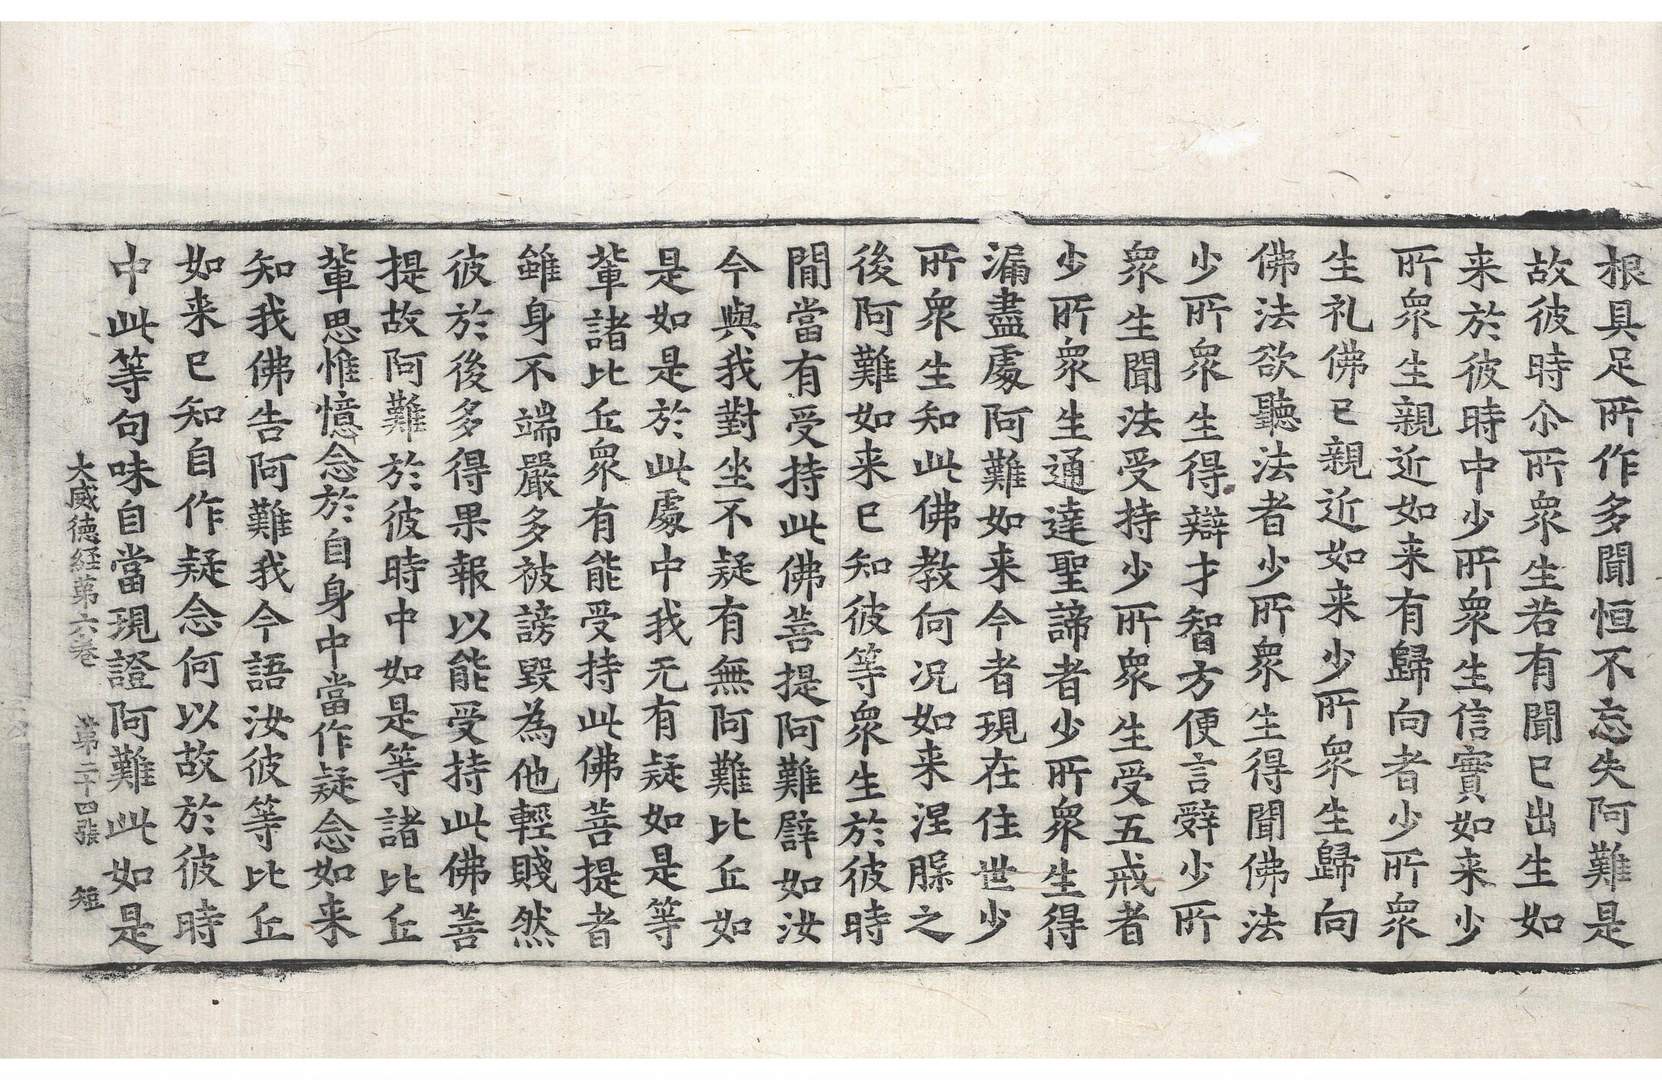 根具足所作多聞恒不忘失阿難是
故彼時尒所衆生若有聞已出生如
来於彼時中少所衆生信實如来少
所衆生親近如来有歸向者少所衆
生礼佛已親近如来少所衆生歸向
佛法欲聽法者少所衆生得聞佛法
少所衆生得辯才智方便言辤少所
衆生聞法受持少所衆生受五戒者
少所衆生通達聖諦者少所衆生得
漏盡處阿難如来今者現在住世少
所衆生知此佛教何況如来涅槃之
後阿難如来已知彼等衆生於彼時
閒當有受持此佛菩提阿難譬如汝
今與我對坐不疑有無阿難比丘如
是如是於此處中我无有疑如是等
軰諸比丘衆有能受持此佛菩提者
雖身不端嚴多被謗毀為他輕賤然
彼於後多得果報以能受持此佛菩
提故阿難於彼時中如是等諸比丘
軰思惟憶念於自身中當作疑念如来
知我佛告阿難我今語汝彼等比丘
如来已知自作疑念何以故於彼時
中此等句味自當現證阿難此如是
大威德経第十六卷 第二十四張 短